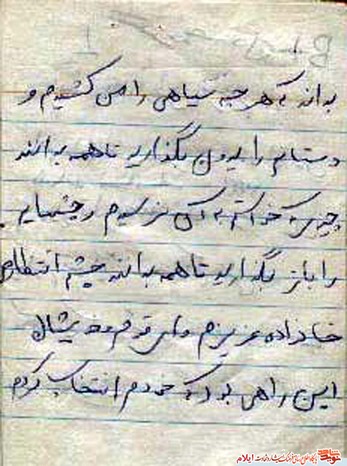 بداند که هر چه سیاهی را می کشیدم و
دستانم را بیرون بگذارید تا همه بدانند
چیزی که خواستم به آن نرسیدم و چشمانم
را باز بگذارید تا همه بدانند چشم انتظارم
خانواده عزیزم و ای قوم و خویشان
این راهی بود که خودم انتخاب کردم
ایلام